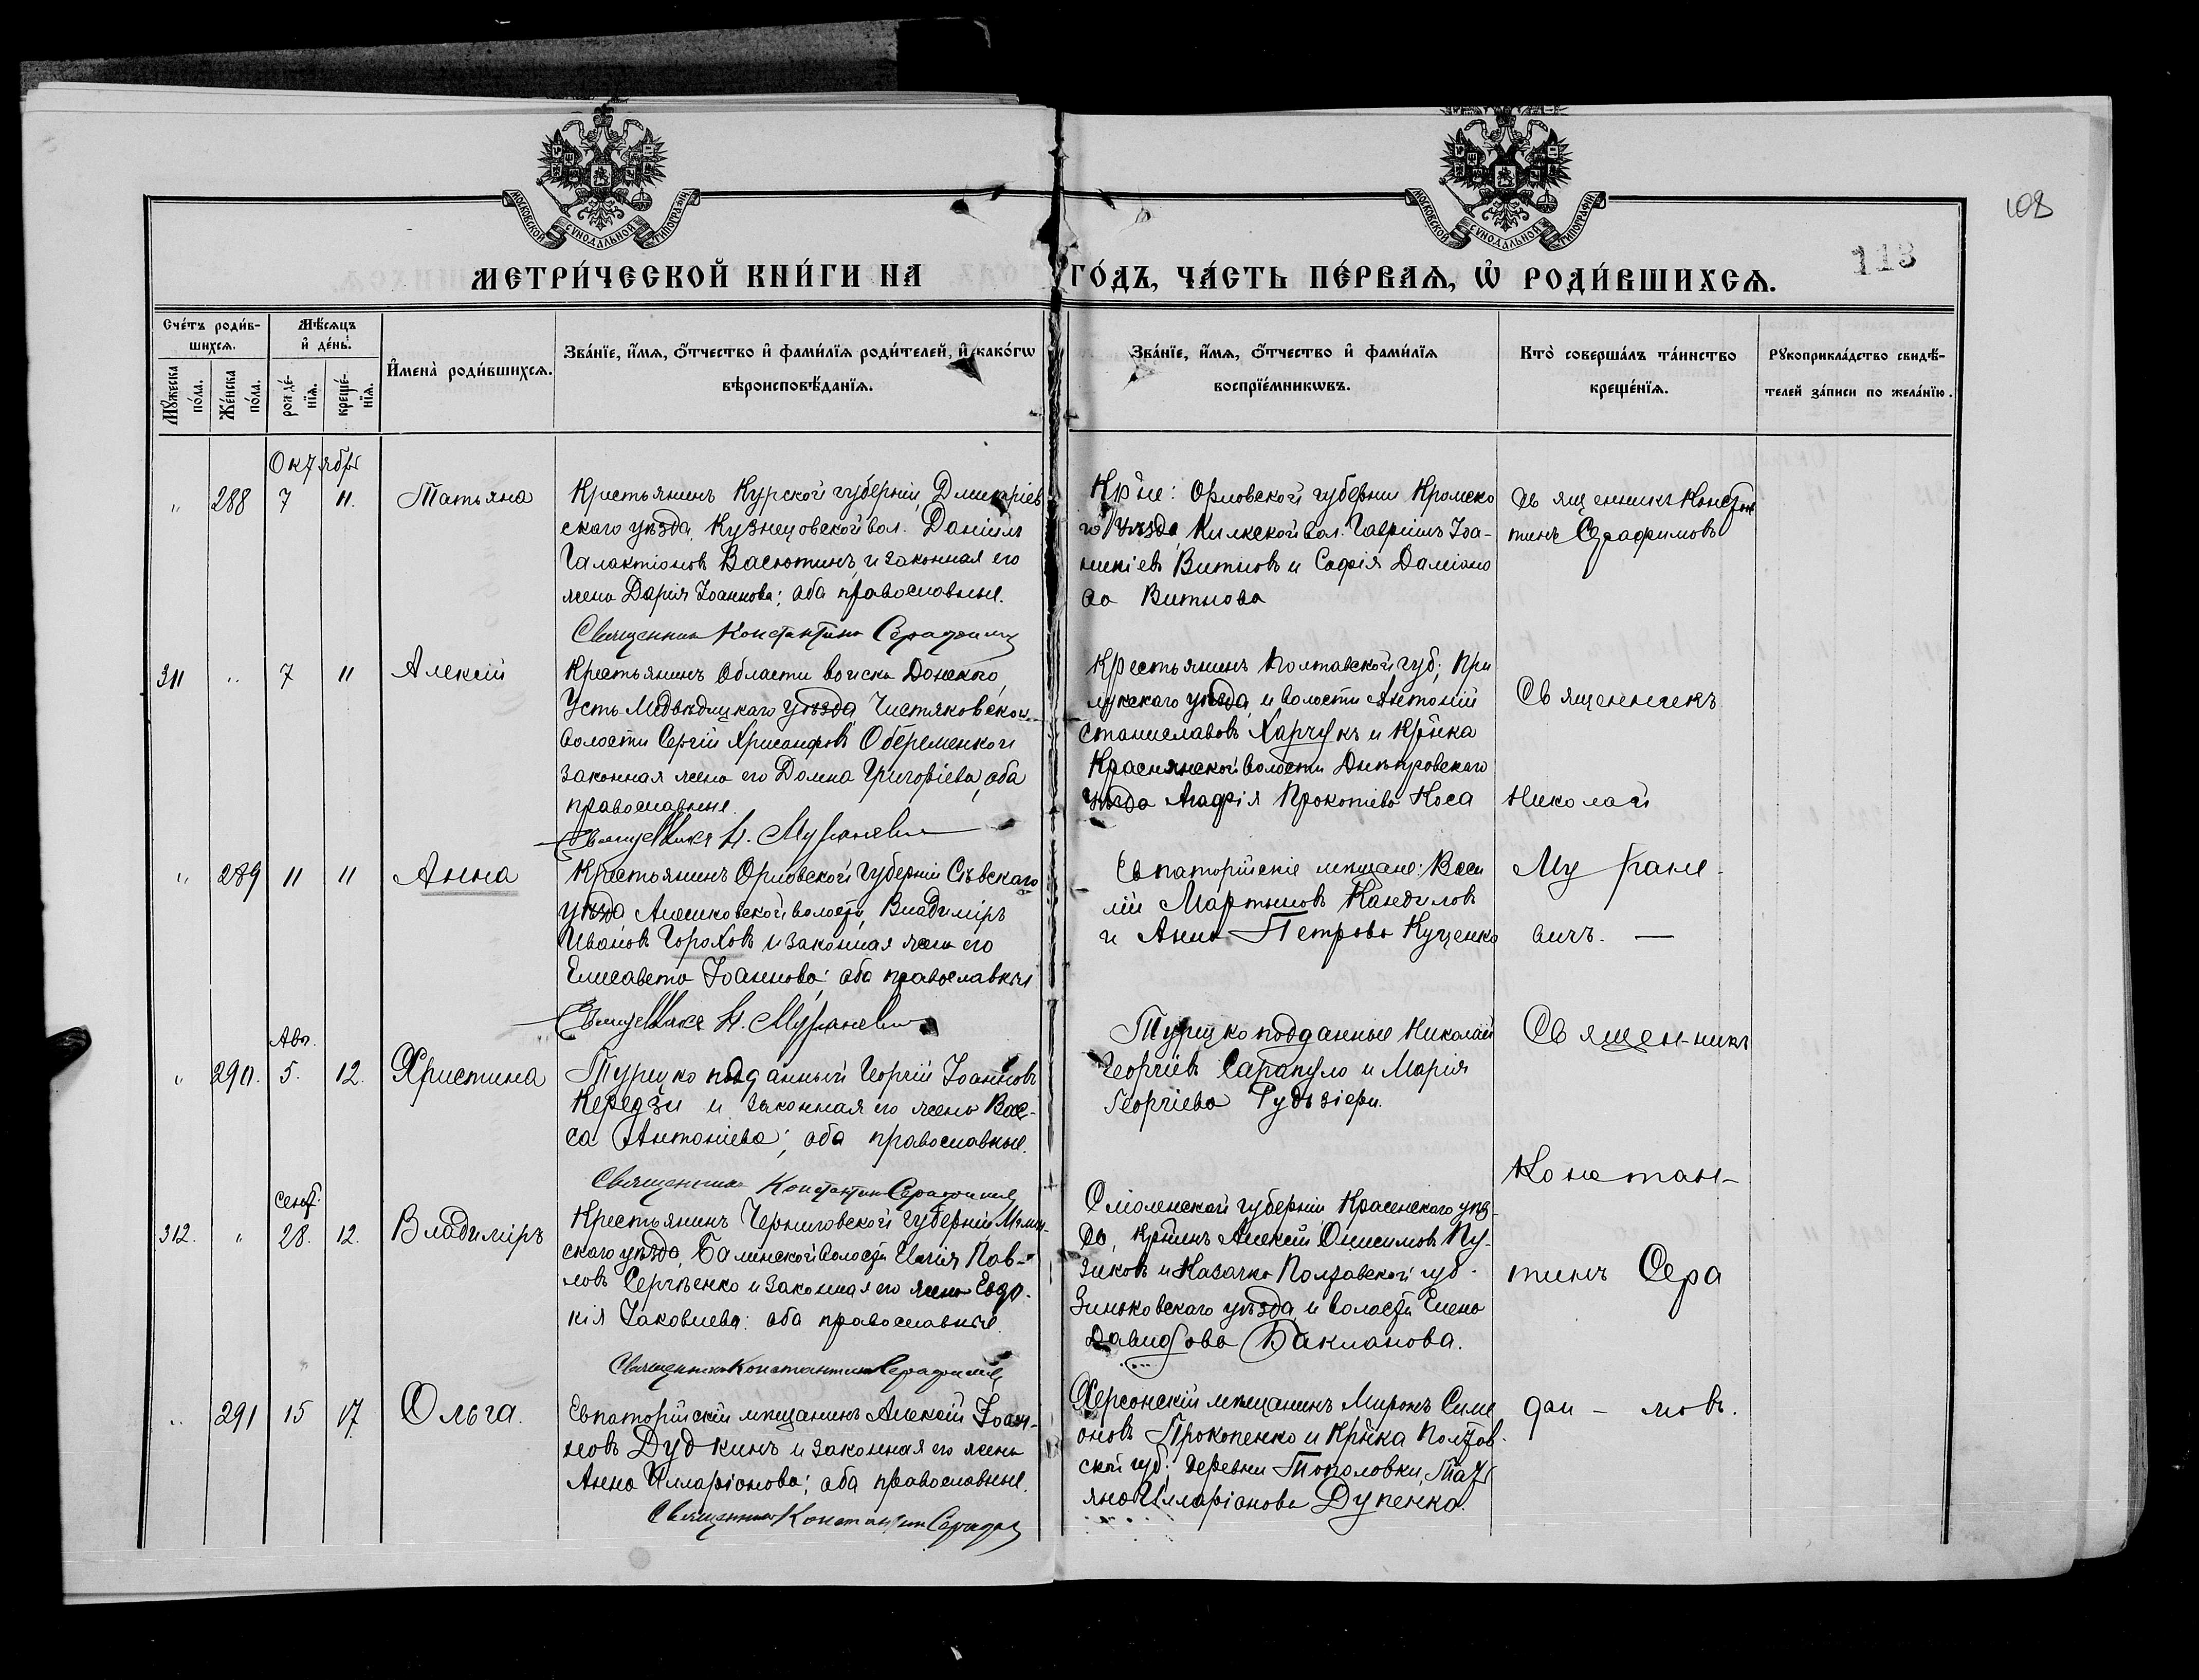 108
113
МОСКОВСКОЙ СѴНОДАЛЬНОЙ ТИПОГРАФІИ
МОСКОВСКОЙ СѴНОДАЛЬНОЙ ТИПОГРАФІИ
МЕТРИ́ЧЕСКОЙ КНИ́ГИ НА ГО́ДЪ, ЧА́СТЬ ПЕ́РВАѦ, Ѡ҆ РОДИ́ВШИХСѦ.
Сче́тъ роди́в-
шихсѧ.
Мѣ́сѧцъ
и҆ де́нь.
Мꙋ́жеска
по́ла.
Же́нска
по́ла.
рожде́-
нїѧ.
креще́-
нїѧ.
И҆мена̀ роди́вшихсѧ.
Зва́нїе, и҆́мѧ, ѻ҆́тчество и҆ фами́лїѧ роди́телей, и҆ како́гѡ
вѣроисповѣ́данїѧ.
Зва́нїе, и҆́мѧ, ѻ҆́тчество и҆ фами́лїѧ
воспрїе́мникѡвъ.
Кто̀ соверша́лъ та́инство
креще́нїѧ.
Рꙋкоприкла́дство свидѣ́-
телей за́писи по жела́нїю.
Октябрь
" 288 7 11. Татьяна
Крестьянинъ Курской губерніи, Дмитріев
скаго уѣзда, Кузнецовской вол. Даніилъ
Галактіоновъ Васютинъ, и законная его
жена Дарія Іоаннова; оба православные.
Священникъ Константинъ Серафимовъ
Кр̃не: Орловской губерніи Кромско
го уѣзда, вол. Гавріилъ Іоа-
никіевъ Витновъ и Софія Даміано
ва Витнова
Священникъ Констан
тинъ Серафимовъ
311 " 7 11 Алексій
Крестьянинъ Области войска Донского,
Усть Медвѣдицкаго уѣзда Чистяковской
волости Сергій Хрисанфовъ
законная жена его Домна Григоріева, оба
православные.
Священникъ Н. Мураневичъ
Крестьянинъ Полтавской губ; При
лукскаго уѣзда, и волости Антоній
Станиславовъ Харчукъ и Кр̃нка
Краснянской волости Днѣпровскаго
уѣзда Агафія Прокопіева Коса
Священникъ
Николай
" 289 11 11 Анна
Крестьянинъ Орловской губерніи Сѣвскаго
уѣзда Алешковской волости, Владиміръ
Ивановъ Гороховъ и законная жена его
Елисавета Іоаннова; оба православные
Священникъ Н. Мураневичъ
Евпаторійскіе мѣщане: Васи
лій Мартыновъ Кандиловъ
и Анна Петрова Куценко
Му ране-
вичъ. —
Авг.
" 290. 5. 12. Христина
Турецко подданный Георгій Іоанновъ
Кередзи и законная его жена Вас-
са Антоніева; оба православные.
Священникъ Константинъ Серафимовъ
Турецко подданные Николай
Георгіевъ Сарапуло и Марія
Георгіева
Священникъ
Констан-
Сент.
312. " 28. 12. Владиміръ
Крестьянинъ Черниговской губерніи,
скаго уѣзда, волости Илія Пав-
ловъ Сергѣенко и законная его жена Евдо-
кія Іаковлева: оба православные.
Священникъ Константинъ Серафимовъ
Смоленской губерніи Красенскаго уѣз-
да, Кр̃нинъ Алексій Онисимовъ Пу-
зиковъ и Казачка Полтавской губ.
Зиньковскаго уѣзда, и волости Елена
Давидова Бакланова.
тинъ Сера
" 291 15 17. Ольга.
Евпаторійскій мѣщанинъ Алексій Іоан-
новъ Дудкинъ и законная его жена
Анна Илларіонова; оба православные.
Священникъ Константинъ
Херсонскій мѣщанинъ Миронъ Симе
оновъ Прокопенко и Кр̃нка Полтав-
ской губ; деревни Тополовки, Тать
яна Илларіонова Дупенко.
фи – мовъ.